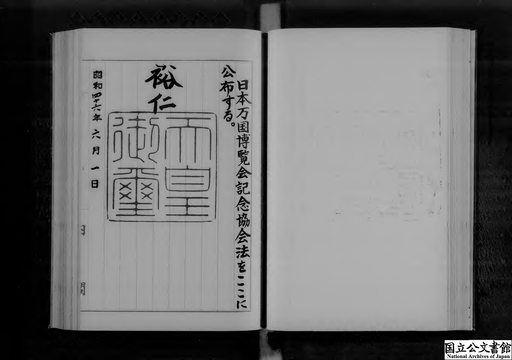 日本万国博覧会記念協会法をここに
公布する。
裕仁
天皇
御璽
昭和四十六年六月一日
国立公文書館
National Archives of Japan